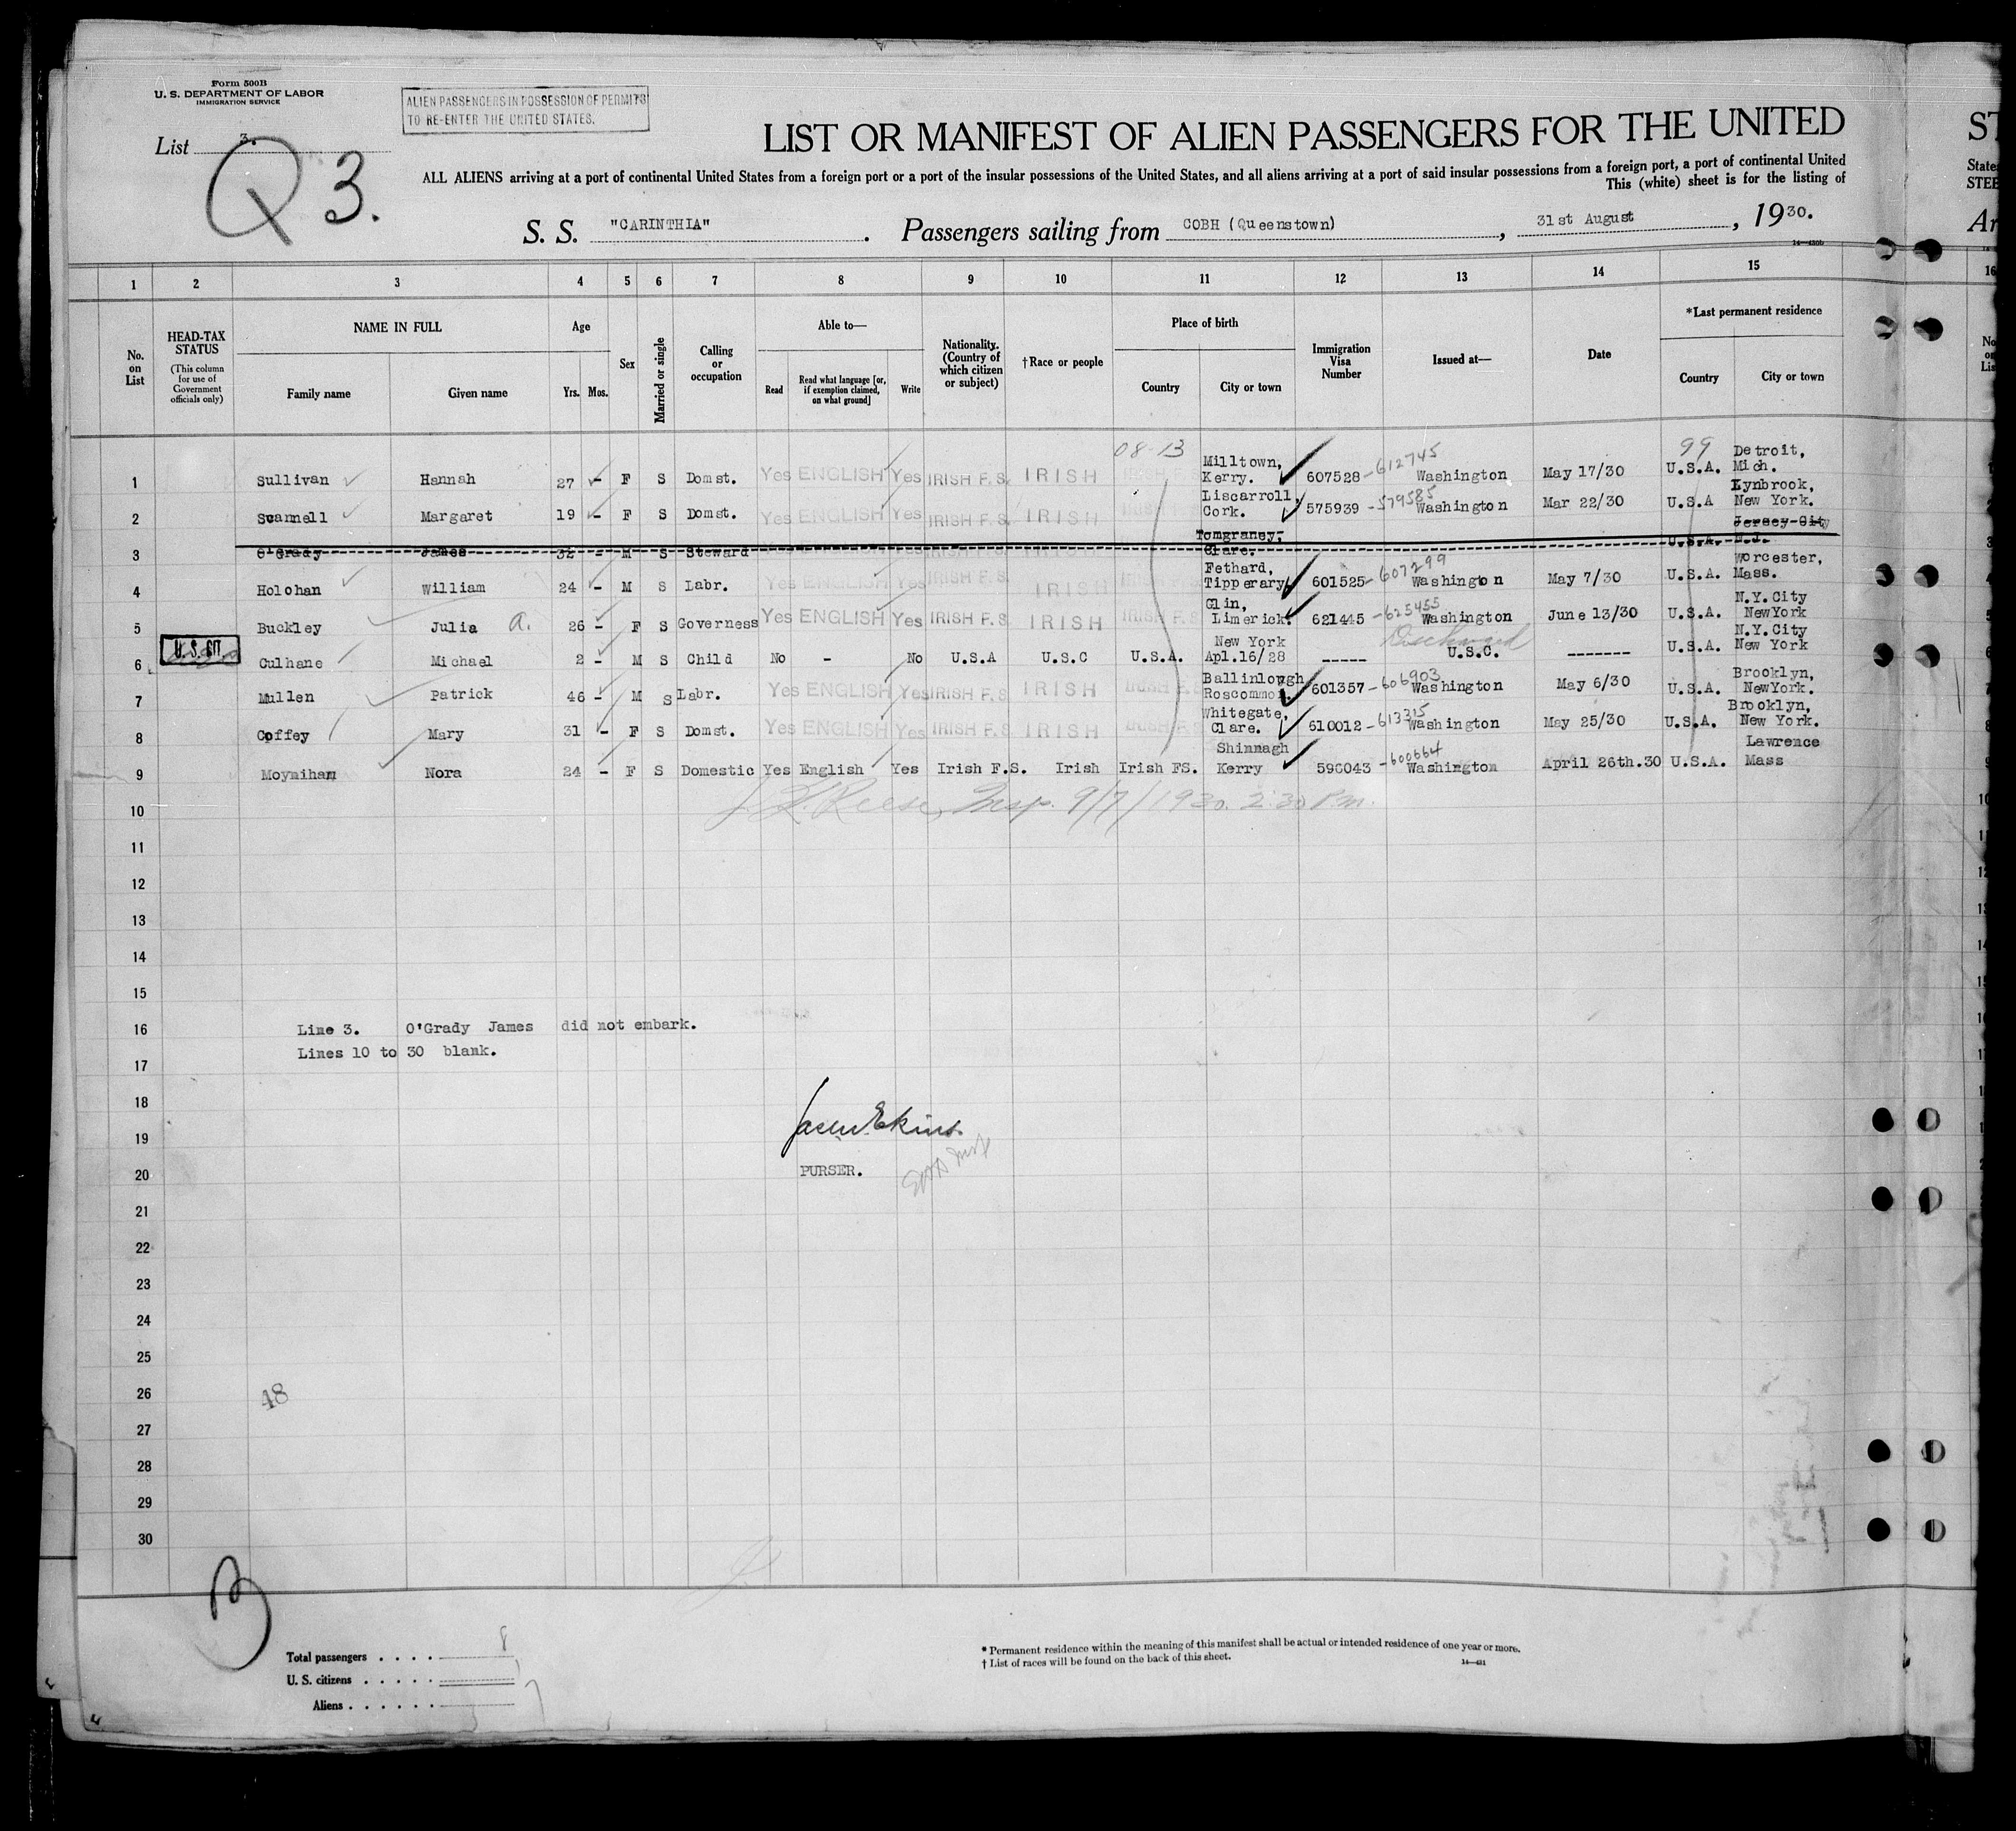 Form 500B
U. S. DEPARTMENT OF LABOR
IMMIGRATION SERVICE
ALIEN PASSENGERS IN POSSESSION OF PERMITS
TO RE-ENTER THE UNITED STATES.
List 3.
Q 3.
LIST OR MANIFEST OF ALIEN PASSENGERS FOR THE UNITED
ST
ALL ALIENS arriving at a port of continental United States from a foreign port or a port of the insular possessions of the United States, and all aliens arriving at a port of said insular possessions from a foreign port, a port of continental United
States
This (white) sheet is for the listing of
STEE
S. S. "CARINTHIA". Passengers sailing from COBH (Queenstown), 31st August, 1930.
Ar
14—430b
1 2 3 4 5 6 7 8 9 10 11 12 13 14 15 16
No. on List
HEAD-TAX STATUS (This column for use of Government officials only)
NAME IN FULL Family name Given name
Age Yrs. Mos.
Sex
Married or single
Calling or occupation
Able to— Read Read what language [or, if exemption claimed, on what ground] Write
Nationality. (Country of which citizen or subject)
†Race or people
Place of birth Country City or town
Immigration Visa Number
Issued at—
Date
*Last permanent residence Country City or town
08-13 99
1 Sullivan Hannah 27 - F S Domst. Yes ENGLISH Yes IRISH F.S. IRISH IRISH F.S. Milltown, Kerry. 607528 -612745 Washington May 17/30 U.S.A. Detroit, Mich.
2 Scannell Margaret 19 - F S Domst. Yes ENGLISH Yes IRISH F.S. IRISH IRISH F.S. Liscarroll, Cork. 575939 -579585 Washington Mar 22/30 U.S.A Lynbrook, New York.
3 O'Grady James 32 - M S Steward Tomgraney, Clare. U.S.A. Jersey City N.J.
4 Holohan William 24 - M S Labr. Yes ENGLISH Yes IRISH F.S. IRISH IRISH F.S. Fethard, Tipperary 601525 -607299 Washington May 7/30 U.S.A. Worcester, Mass.
5 Buckley Julia A. 26 - F S Governess Yes ENGLISH Yes IRISH F.S. IRISH IRISH F.S. Glin, Limerick. 621445 -625455 Washington June 13/30 U.S.A. N.Y.City NewYork
6 U.S. CIT. Culhane Michael 2 - M S Child No - No U.S.A U.S.C U.S.A. New York Apl.16/28 ----- U.S.C. ------- U.S.A. N.Y.City New York
7 Mullen Patrick 46 - M S Labr. Yes ENGLISH Yes IRISH F.S. IRISH IRISH F.S. Ballinlough Roscommon. 601357 -606903 Washington May 6/30 U.S.A. Brooklyn, NewYork.
8 Coffey Mary 31 - F S Domst. Yes ENGLISH Yes IRISH F.S. IRISH IRISH F.S. Whitegate, Clare. 610012 -613315 Washington May 25/30 U.S.A. Brooklyn, New York.
9 Moynihan Nora 24 - F S Domestic Yes English Yes Irish F.S. Irish Irish FS. Shinnagh Kerry 596043 -600664 Washington April 26th.30 U.S.A. Lawrence Mass
10 Reese, Insp. 9/7/1930. 2:30 P.m.
11
12
13
14
15
16 Line 3. O'Grady James did not embark.
Lines 10 to 30 blank.
17
18
19
20 PURSER.
21
22
23
24
25
26 48
27
28
29
30
B
Total passengers . . . . 8
U. S. citizens . . . . . 1
Aliens . . . . . . 7
* Permanent residence within the meaning of this manifest shall be actual or intended residence of one year or more.
† List of races will be found on the back of this sheet.
14—431